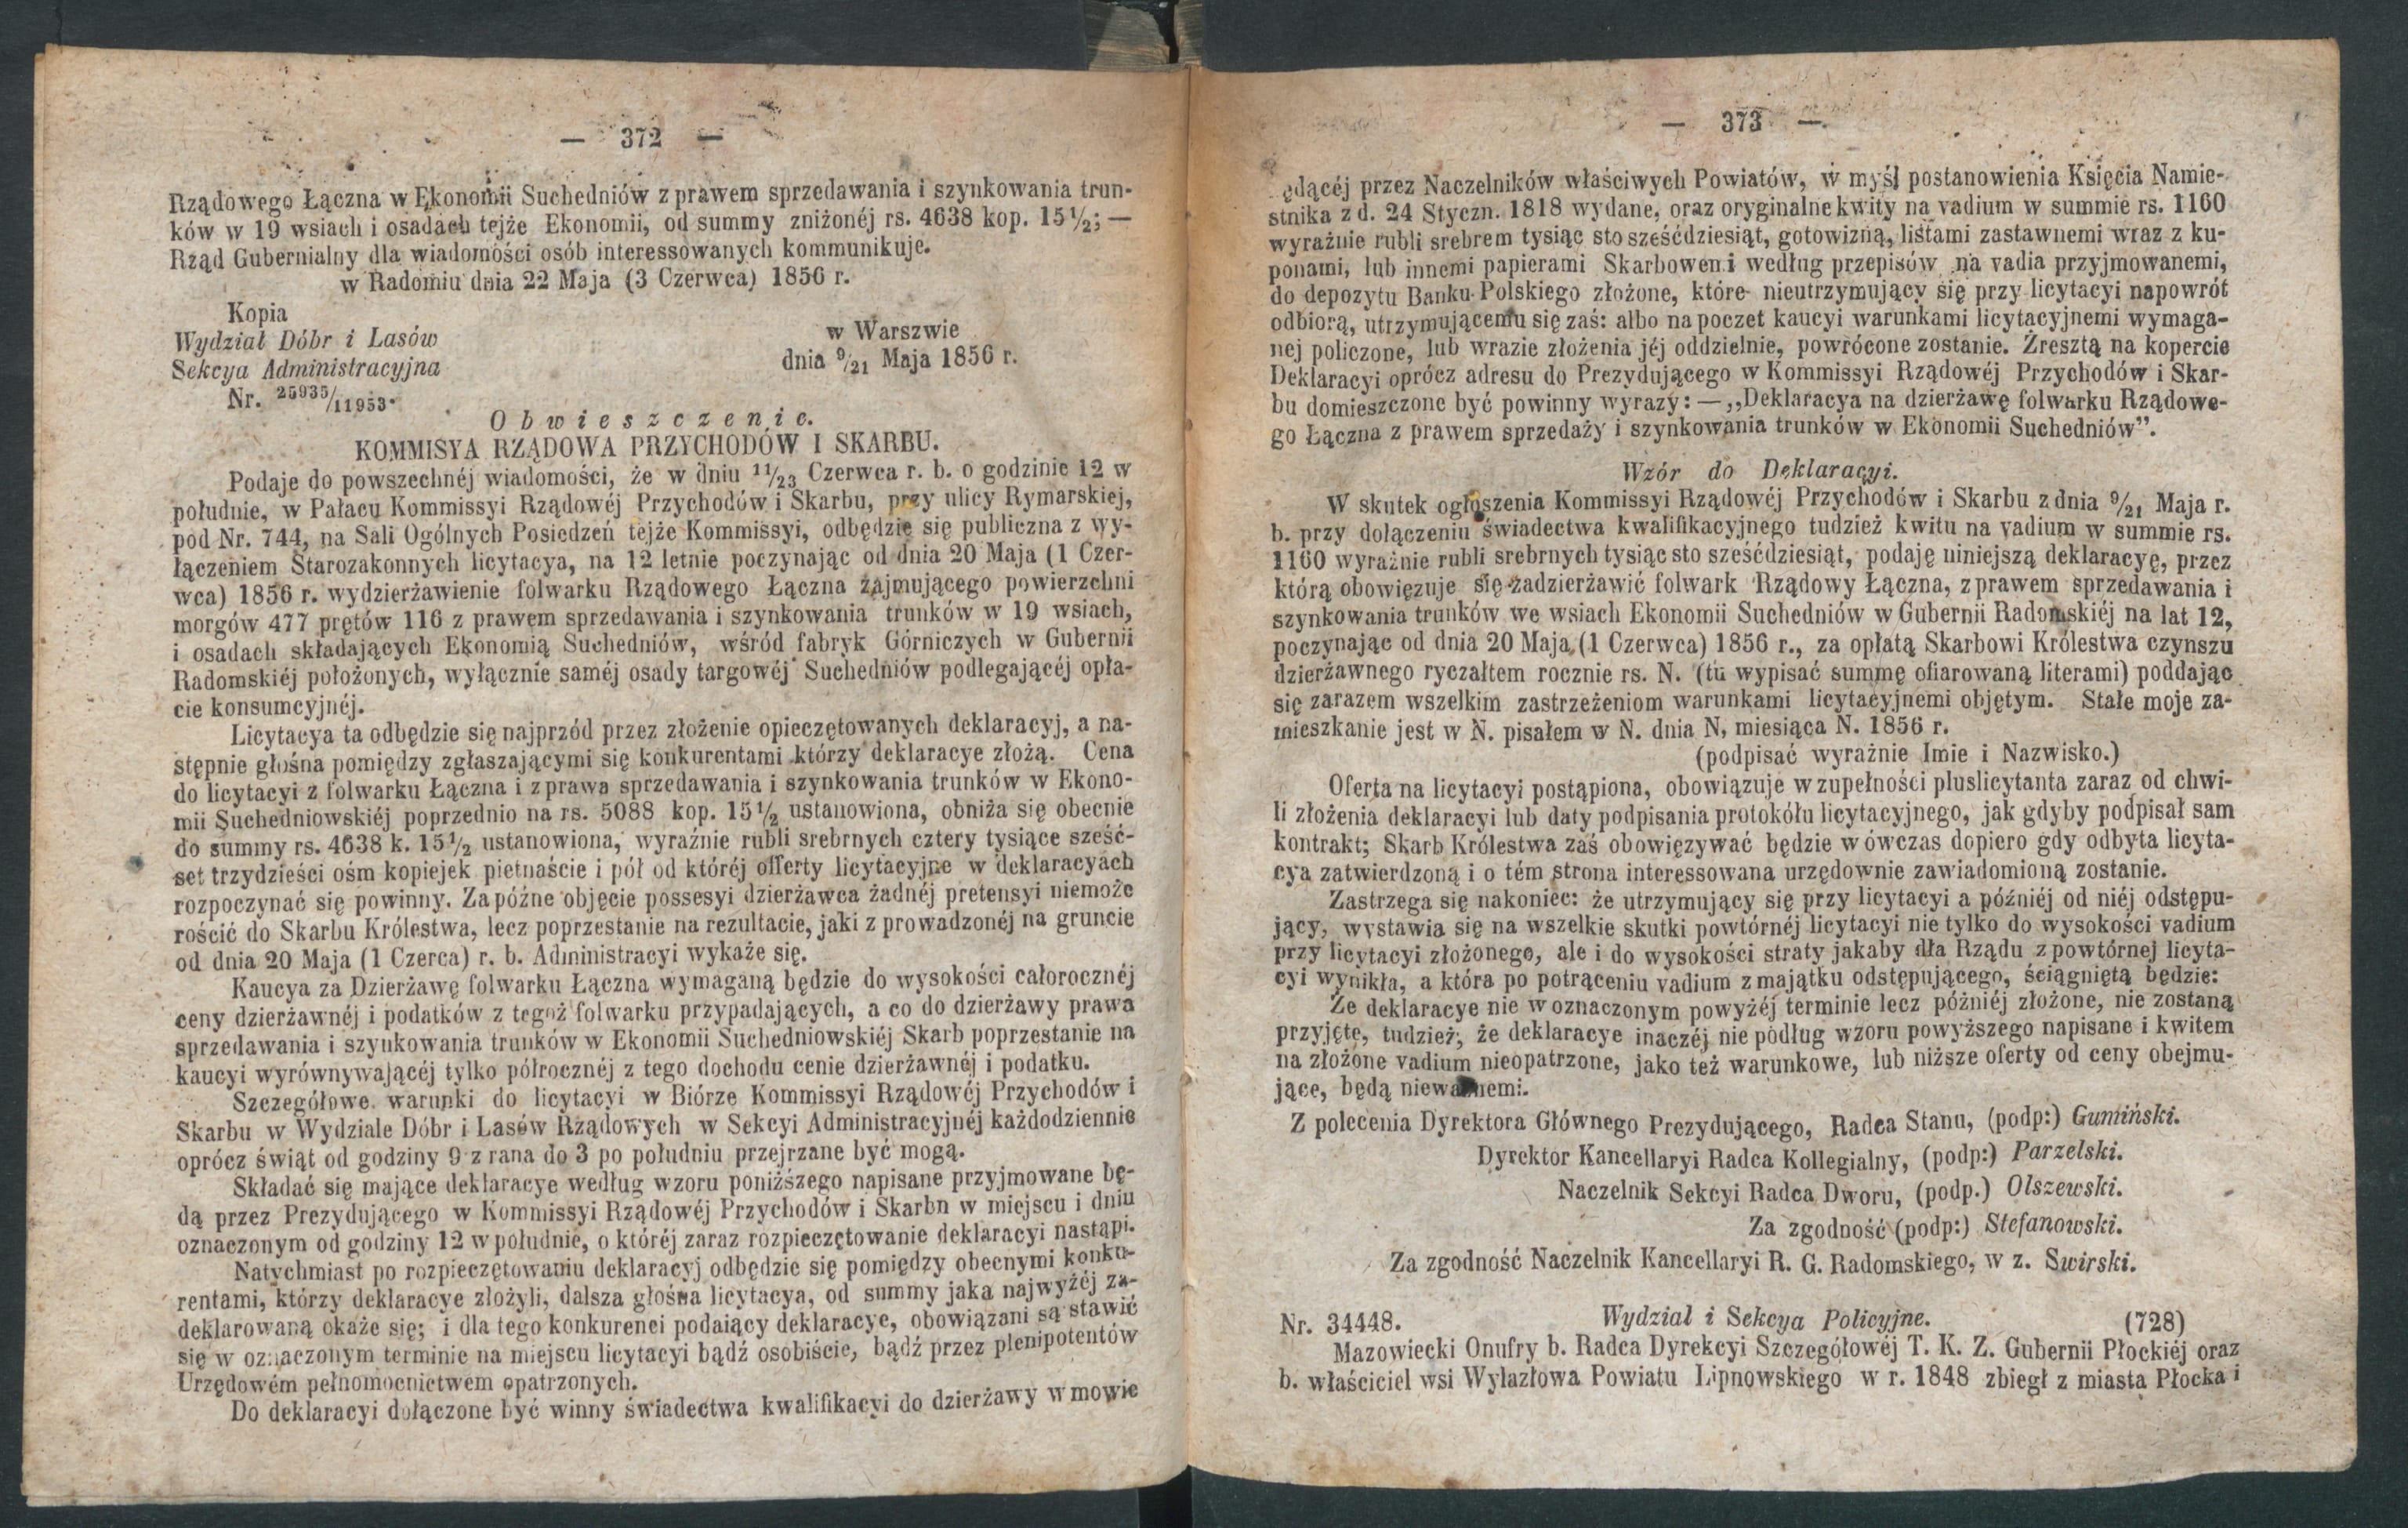 — 372 —
Rządowego Łączna w Ekonomii Suchedniów z prawem sprzedawania i szynkowania trun-
ków w 19 wsiach i osadach tejże Ekonomii, od summy zniżonéj rs. 4638 kop. 15½; —
Rząd Gubernialny dla wiadomości osób interessowanych kommunikuje.
w Radomiu dnia 22 Maja (3 Czerwca) 1856 r.
Kopia
Wydział Dóbr i Lasów
w Warszwie
Sekcya Administracyjna
dnia 9/21 Maja 1856 r.
Nr. 25935/11953.
Obwieszczenie.
KOMMISYA RZĄDOWA PRZYCHODÓW I SKARBU.
Podaje do powszechnéj wiadomości, że w dniu 11/23 Czerwca r. b. o godzinie 12 w
południe, w Pałacu Kommissyi Rządowéj Przychodów i Skarbu, przy ulicy Rymarskiej,
pod Nr. 744, na Sali Ogólnych Posiedzeń tejże Kommissyi, odbędzie się publiczna z wy-
łączeniem Starozakonnych licytacya, na 12 letnie poczynając od dnia 20 Maja (1 Czer-
wca) 1856 r. wydzierżawienie folwarku Rządowego Łączna zajmującego powierzchni
morgów 477 prętów 116 z prawem sprzedawania i szynkowania trunków w 19 wsiach,
i osadach składających Ekonomią Suchedniów, wśród fabryk Górniczych w Gubernii
Radomskiéj położonych, wyłącznie saméj osady targowéj Suchedniów podlegającéj opła-
cie konsumcyjnéj.
Licytacya ta odbędzie się najprzód przez złożenie opieczętowanych deklaracyj, a na-
stępnie głośna pomiędzy zgłaszającymi się konkurentami którzy deklaracye złożą. Cena
do licytacyi z folwarku Łączna i z prawa sprzedawania i szynkowania trunków w Ekono-
mii Suchedniowskiéj poprzednio na rs. 5088 kop. 15½ ustanowiona, obniża się obecnie
do summy rs. 4638 k. 15½ ustanowiona, wyraźnie rubli srebrnych cztery tysiące sześć-
set trzydzieści ośm kopiejek pietnaście i pół od któréj offerty licytacyjne w deklaracyach
rozpoczynać się powinny. Za późne objęcie possesyi dzierżawca żadnéj pretensyi niemoże
rościć do Skarbu Królestwa, lecz poprzestanie na rezultacie, jaki z prowadzonéj na gruncie
od dnia 20 Maja (1 Czerca) r. b. Administracyi wykaże się.
Kaucya za Dzierżawę folwarku Łączna wymaganą będzie do wysokości całorocznéj
ceny dzierżawnéj i podatków z tegoż folwarku przypadających, a co do dzierżawy prawa
sprzedawania i szynkowania trunków w Ekonomii Suchedniowskiéj Skarb poprzestanie na
kaucyi wyrównywającéj tylko półrocznéj z tego dochodu cenie dzierżawnéj i podatku.
Szczegółowe warunki do licytacyi w Biórze Kommissyi Rządowéj Przychodów i
Skarbu w Wydziale Dóbr i Lasów Rządowych w Sekcyi Administracyjnéj każdodziennie
oprócz świąt od godziny 9 z rana do 3 po południu przejrzane być mogą.
Składać się mające deklaracye według wzoru poniższego napisane przyjmowane bę-
dą przez Prezydującego w Kommissyi Rządowéj Przychodów i Skarbn w miejscu i dniu
oznaczonym od godziny 12 w południe, o któréj zaraz rozpieczętowanie deklaracyi nastąpi.
Natychmiast po rozpieczętowaniu deklaracyj odbędzie się pomiędzy obecnymi konku-
rentami, którzy deklaracye złożyli, dalsza głośna licytacya, od summy jaka najwyżéj za-
deklarowaną okaże się; i dla tego konkurenci podaiący deklaracye, obowiązani są stawić
się w oznaczonym terminie na miejscu licytacyi bądź osobiście, bądź przez plenipotentów
Urzędowém pełnomocnictwem opatrzonych.
Do deklaracyi dołączone być winny świadectwa kwalifikacyi do dzierżawy w mowie
— 373 —
ędącéj przez Naczelników właściwych Powiatów, w myśl postanowienia Księcia Namie-
stnika z d. 24 Styczn. 1818 wydane, oraz oryginalne kwity na vadium w summie rs. 1160
wyraźnie rubli srebrem tysiąc sto sześćdziesiąt, gotowizną, listami zastawnemi wraz z ku-
ponami, lub innemi papierami Skarbowemi według przepisów na vadia przyjmowanemi,
do depozytu Banku Polskiego złożone, które nieutrzymujący się przy licytacyi napowrót
odbiorą, utrzymującemu się zaś: albo na poczet kaucyi warunkami licytacyjnemi wymaga-
nej policzone, lub wrazie złożenia jéj oddzielnie, powrócone zostanie. Zresztą na kopercie
Deklaracyi oprócz adresu do Prezydującego w Kommissyi Rządowéj Przychodów i Skar-
bu domieszczone być powinny wyrazy: — „Deklaracya na dzierżawę folwarku Rządowe-
go Łączna z prawem sprzedaży i szynkowania trunków w Ekonomii Suchedniów”.
Wzór do Deklaracyi.
W skutek ogłoszenia Kommissyi Rządowéj Przychodów i Skarbu z dnia 9/21 Maja r.
b. przy dołączeniu świadectwa kwalifikacyjnego tudzież kwitu na vadium w summie rs.
1160 wyraźnie rubli srebrnych tysiąc sto sześćdziesiąt, podaję niniejszą deklaracyę, przez
którą obowięzuje się zadzierżawić folwark Rządowy Łączna, z prawem sprzedawania i
szynkowania trunków we wsiach Ekonomii Suchedniów w Gubernii Radomskiéj na lat 12,
poczynając od dnia 20 Maja (1 Czerwca) 1856 r., za opłatą Skarbowi Królestwa czynszu
dzierżawnego ryczałtem rocznie rs. N. (tu wypisać summę ofiarowaną literami) poddając
się zarazem wszelkim zastrzeżeniom warunkami licytacyjnemi objętym. Stałe moje za-
mieszkanie jest w N. pisałem w N. dnia N, miesiąca N. 1856 r.
(podpisać wyraźnie Imie i Nazwisko.)
Oferta na licytacyi postąpiona, obowiązuje w zupełności pluslicytanta zaraz od chwi-
li złożenia deklaracyi lub daty podpisania protokółu licytacyjnego, jak gdyby podpisał sam
kontrakt; Skarb Królestwa zaś obowięzywać będzie wówczas dopiero gdy odbyta licyta-
cya zatwierdzoną i o tém strona interessowana urzędownie zawiadomioną zostanie.
Zastrzega się nakoniec: że utrzymujący się przy licytacyi a późniéj od niéj odstępu-
jący, wystawia się na wszelkie skutki powtórnéj licytacyi nie tylko do wysokości vadium
przy licytacyi złożonego, ale i do wysokości straty jakaby dla Rządu z powtórnej licyta-
cyi wynikła, a która po potrąceniu vadium z majątku odstępującego, ściągniętą będzie:
Że deklaracye nie w oznaczonym powyżéj terminie lecz późniéj złożone, nie zostaną
przyjęte, tudzież, że deklaracye inaczéj nie podług wzoru powyższego napisane i kwitem
na złożone vadium nieopatrzone, jako też warunkowe, lub niższe oferty od ceny obejmu-
jące, będą nieważnemi.
Z polecenia Dyrektora Głównego Prezydującego, Radca Stanu, (podp:) Gumiński.
Dyrektor Kancellaryi Radca Kollegialny, (podp:) Parzelski.
Naczelnik Sekcyi Radca Dworu, (podp.) Olszewski.
Za zgodność (podp:) Stefanowski.
Za zgodność Naczelnik Kancellaryi R. G. Radomskiego, w z. Swirski.
Nr. 34448. Wydział i Sekcya Policyjne. (728)
Mazowiecki Onufry b. Radca Dyrekcyi Szczegółowéj T. K. Z. Gubernii Płockiéj oraz
b. właściciel wsi Wylazłowa Powiatu Lipnowskiego w r. 1848 zbiegł z miasta Płocka i